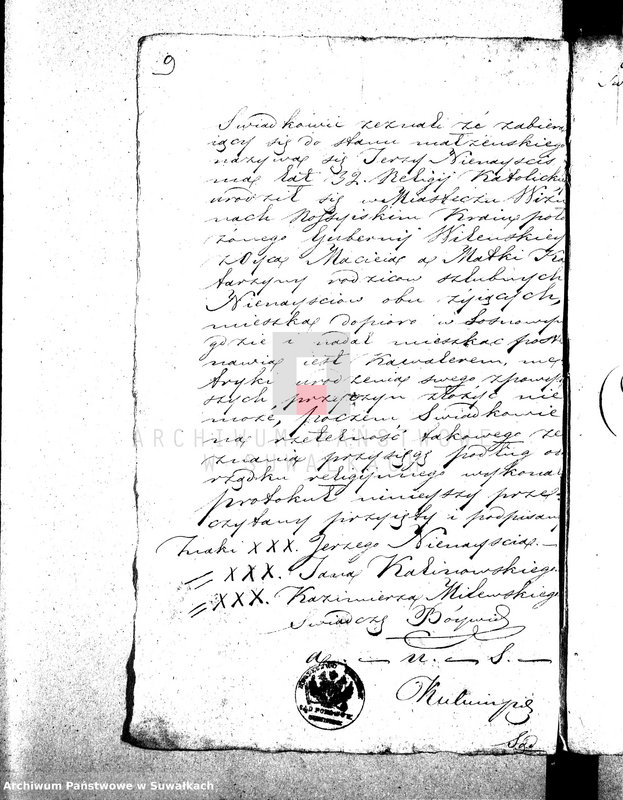 9
Swiadkowie zeznali źe zabier
iący się do stanu małżeńskiego
nazywa się Jerzy Nienayscis
ma lat 32. Religij Katolick
urodził się w Miasteczku Wiżu
nach Rossyiskim Kraiu poło
żonego Gubernij Wilenskiey
z Oyca Macieia a Matki Ka
tarzyny rodziców szlubnych
Nienaysciow obu żyiących,
mieszka dopiero w Sosnowy
gdzie i nadal mieszkac posta
nawia iest Kawalerem, me
tryki urodzenia swego z powyż
szych przyczyn złożyc nie
może, poczem Swiadkowie
na rzetelność takowego ze
znania przysięgę podług ob
rządku religijnego wykona
protokuł ninieyszy prze
czytany przyięty i podpisan
Znaki XXX. Jerzego Nienayscia. —
= XXX. Jana Kalinowskiego
= XXX. Kazimierza Milewskieg
swiadczę
a — n. — S. —
ARCHIWUM PAŃSTWOWE
W SUWAŁKACH
Archiwum Państwowe w Suwałkach